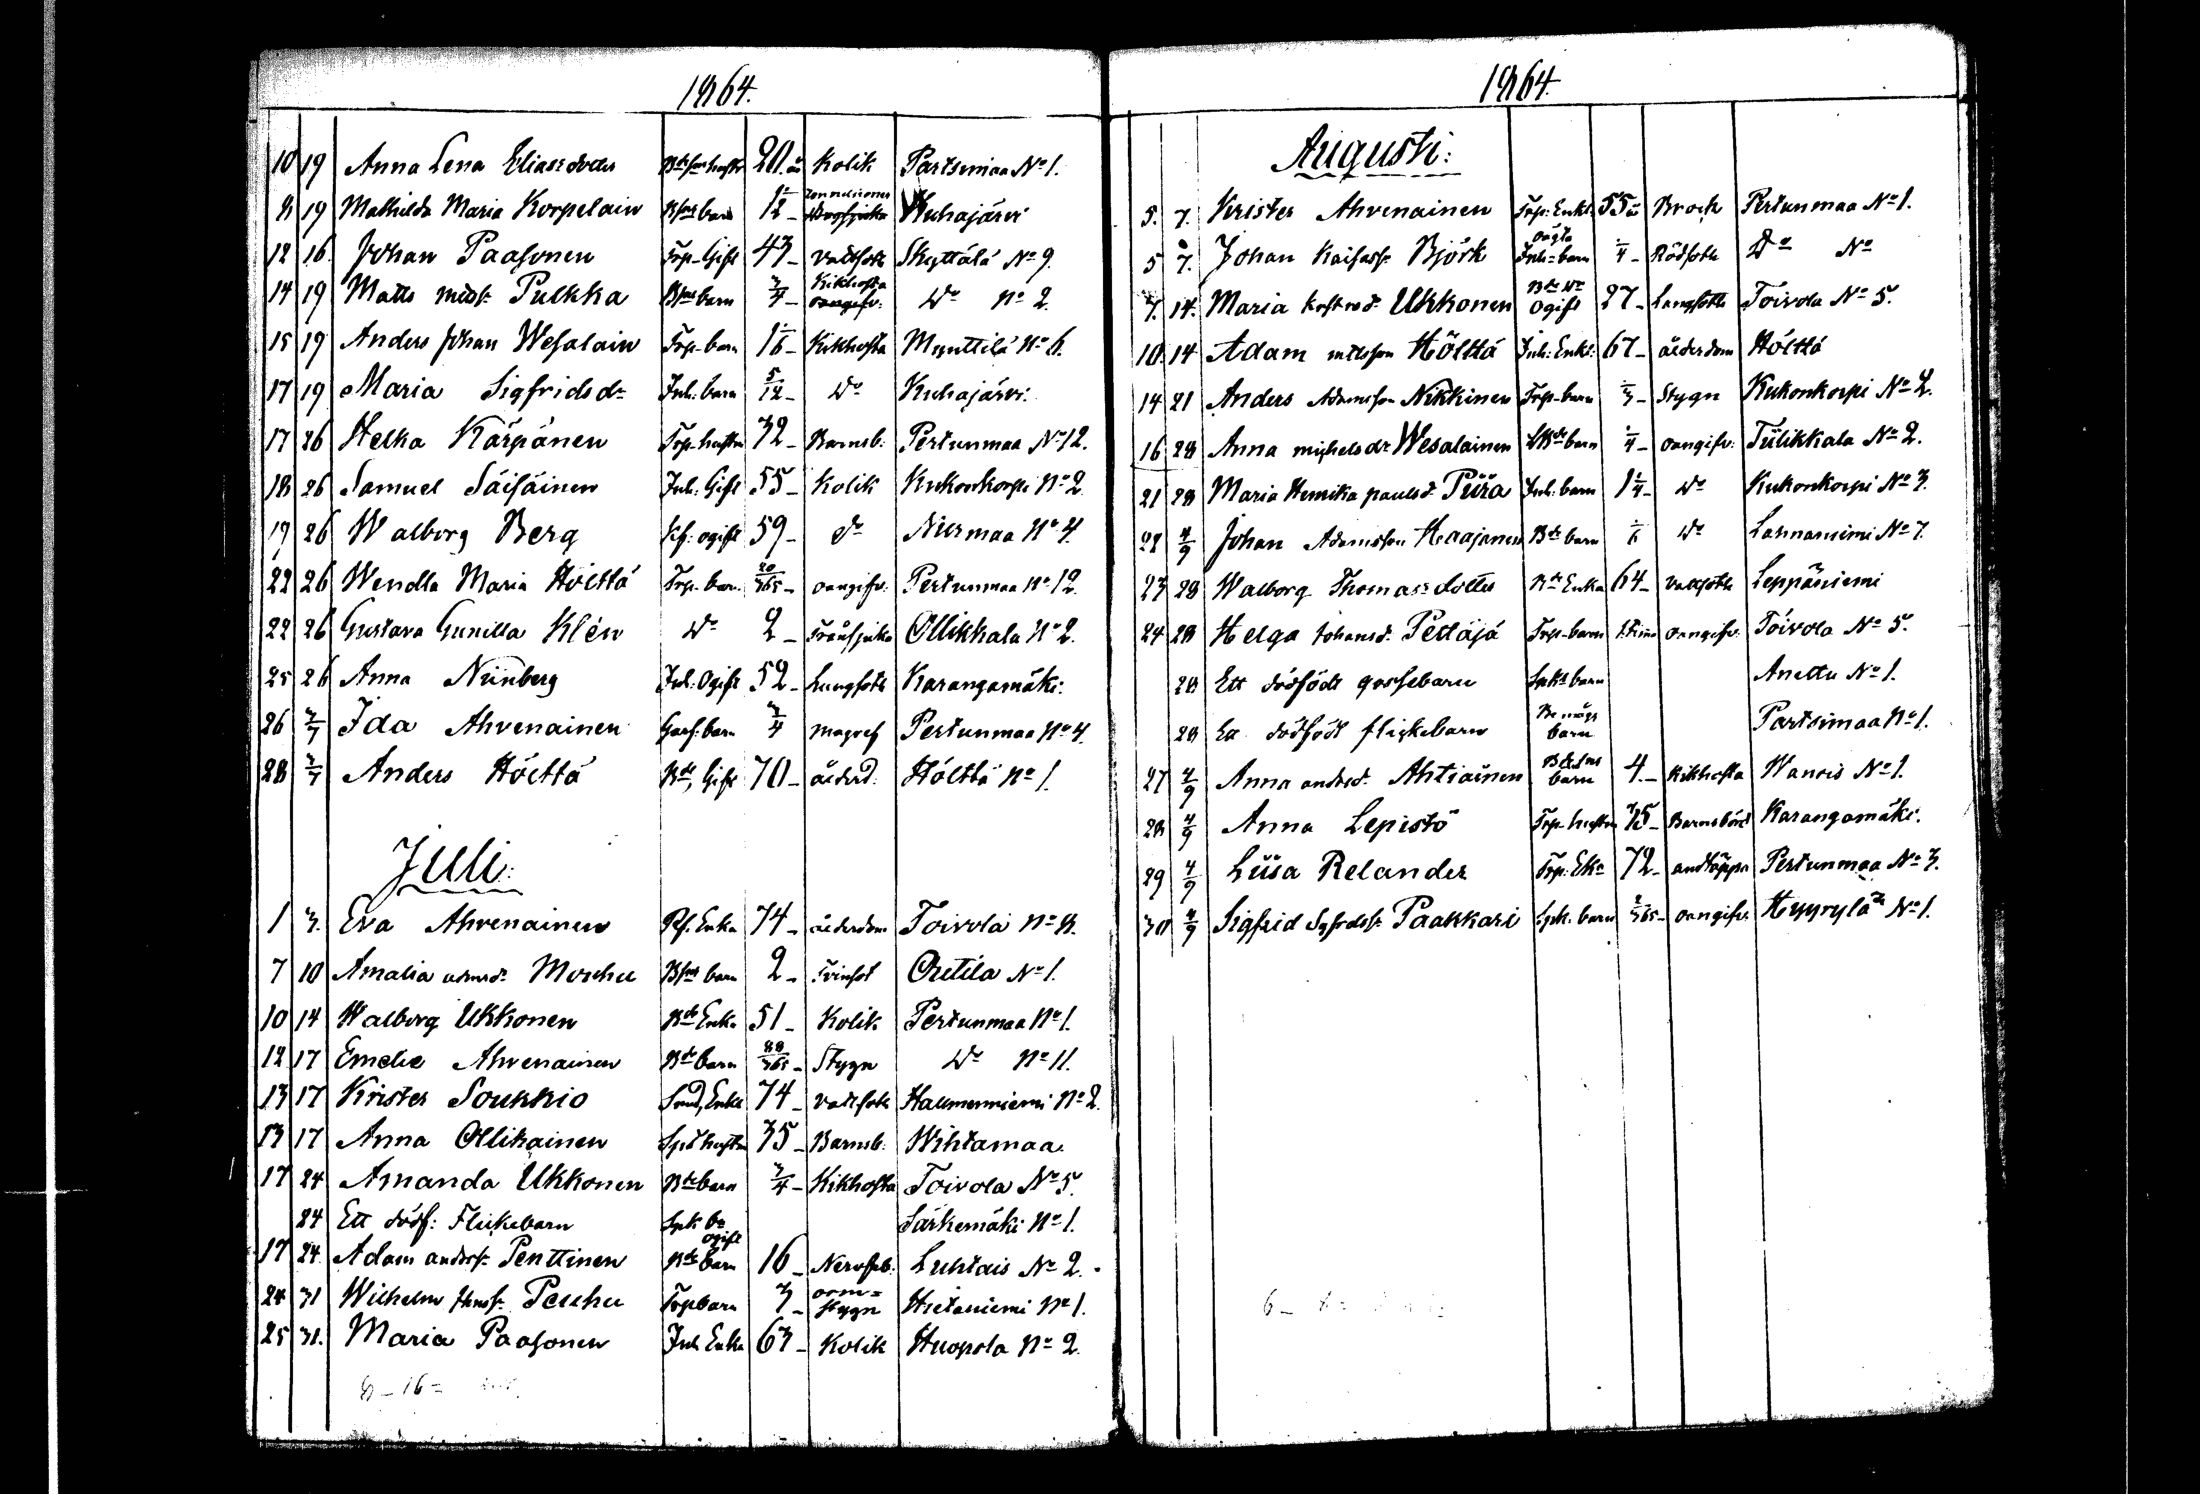 1864.
10 19 Anna Lena Eliasdotter 20 Kolik Partsimaa No 1.
8 19 Mathilda Maria Korpelain barn Kuhajärvi
12 16 Johan Paasonen Trp. Gift 43 vattsot Skyttälä No 9.
14 19 Matts Pulkka barn 3/4 Kikhosta Do No 2.
15 19 Anders Johan Wesalain Trp. barn 1 1/6 Kikhosta Mynttilä No 6.
17 19 Maria Sigfridsdr Inh. barn 5/12 Do Kuhajärvi.
17 26 Helka Kärpänen Trp. hustru 32 Barnsb. Pertunmaa No 12.
18 26 Samuel Säisäinen Inh. Gift 55 Kolik Kukonkorpi No 2.
19 26 Walborg Berg ogift 59 Do Niermaa No 4.
22 26 Wendla Maria Höltta Trp. barn 20/365 oangifv. Pertunmaa No 12.
22 26 Gustava Gunilla Klén Do 2 Ollikkala No 2.
25 26 Anna Niinberg Inh. Ogift 52 Lungsot Karangamäki.
26 3/7 Ida Ahvenainen barn 3/4 magref Pertunmaa No 4.
28 3/7 Anders Höltta Bde Gift 70 ålderd. Höltta No 1.
Juli:
1 3. Eva Ahvenainen Enka 74 ålderdom Toivola No 8.
7 10 Amalia Mouhu barn 2 Tvinsot Outila No 1.
10 14 Walborg Ukkonen Bde Enka 51 Kolik Pertunmaa No 1.
12 17 Emelie Ahvenainen Bde barn 88/365 Stygn Do No 11.
13 17 Krister Soukkio Enkl 74 vattsot Halmenniemi No 2.
13 17 Anna Ollikainen hustru 35 Barnsb. Wihtamaa
17 24 Amanda Ukkonen Bde barn 3/4 Kikhosta Toivola No 5.
24 Ett dödf. Flickebarn Särkemäki No 1.
17 24 Adam andersson Penttinen ogift Bde barn 16 Nervfeb. Luhtais No 2.
24 31 Wilhelm Peuhu Trp barn 3 stygn Hietaniemi No 1.
25 31. Maria Paasonen Inh Enka 63 Kolik Huopola No 2.
1864.
Augusti:
5. 7. Krister Ahvenainen Trp. Enkl. 55 år Brock Pertunmaa No 1.
5 7. Johan Kaisass. Björk oägta Inh. barn 1/4 Rödsot Do No
7. 14. Maria Ukkonen Ogift 27 Lungsot Toivola No 5.
10 14 Adam mattsson Hölttä Inh. Enkl. 67 ålderdom Hölttä
14 21 Anders Adamsson Nikkinen Trp. barn 1/3 Stygn Kukonkorpi No 2.
16 28 Anna michelsdr Wesalainen barn 1/4 oangifv. Tulikkala No 2.
21 28 Maria Henrika paulsd. Piira Inh. barn 1 1/4 Do Kukonkorpi No 3.
22 4/9 Johan Adamsson Haajanen Bde barn 1/6 Do Lahnaniemi No 7.
23 28 Walborg Thomasdotter Bde Enka 64 vattsot Leppäniemi
24 28 Helga Johansd. Petläjä Trp. barn oangifv. Toivola No 5.
28 Ett dödfödt gossebarn barn Anettu No 1.
28 Ett dödfödt flickebarn barn Partsimaa No 1.
27 4/9 Anna andersd. Ahtiainen barn 4 Kikhosta Wanois No 1.
28 4/9 Anna Lepistö Trp. hustru 35 Barnsbörd Karangamäki.
29 4/9 Liisa Relander Trp. Eka 72 andtäppa Pertunmaa No 3.
30 4/9 Sigfrid Paakkari barn oangifv. Hyyrylä No 1.